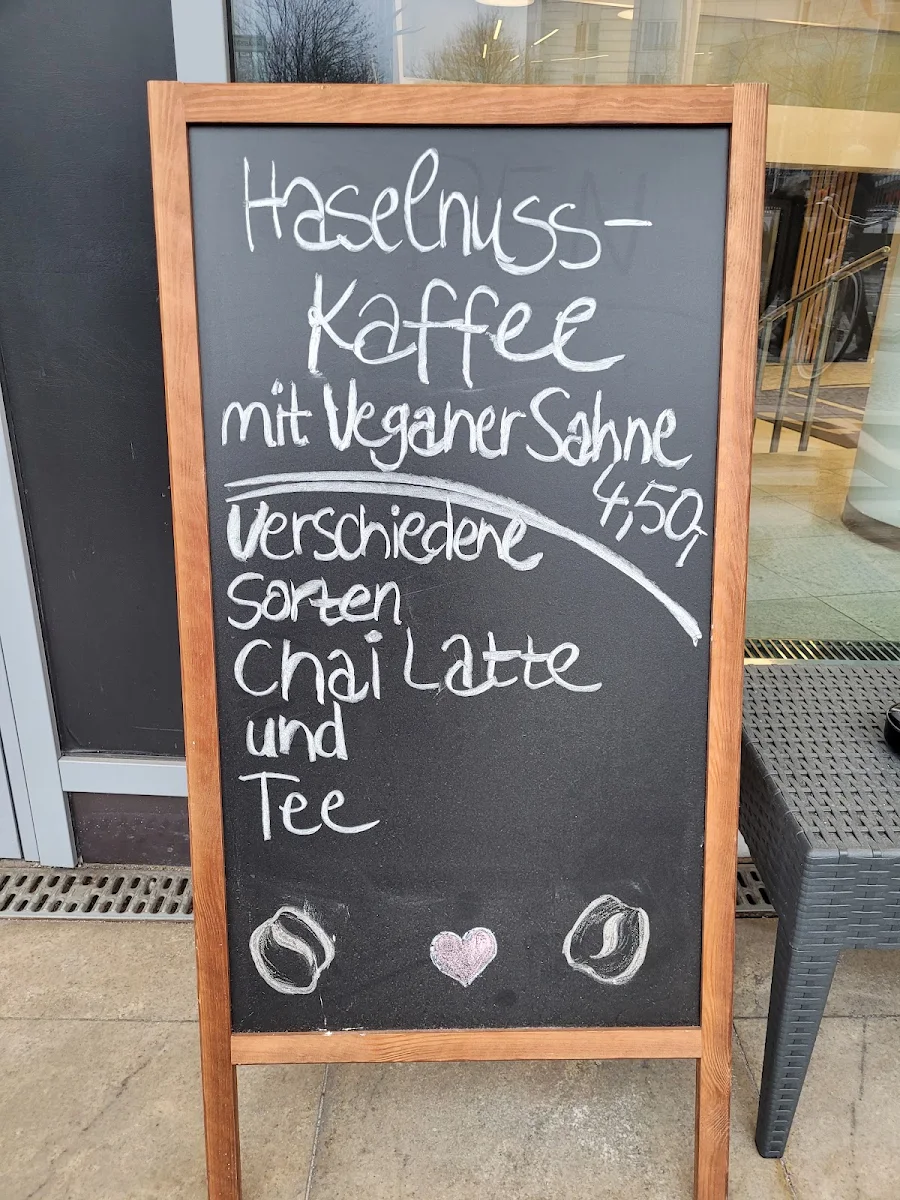 Haselnuss-
Kaffee
mit Veganer Sahne
4,50,-
Verschiedene
Sorten
Chai Latte
und
Tee